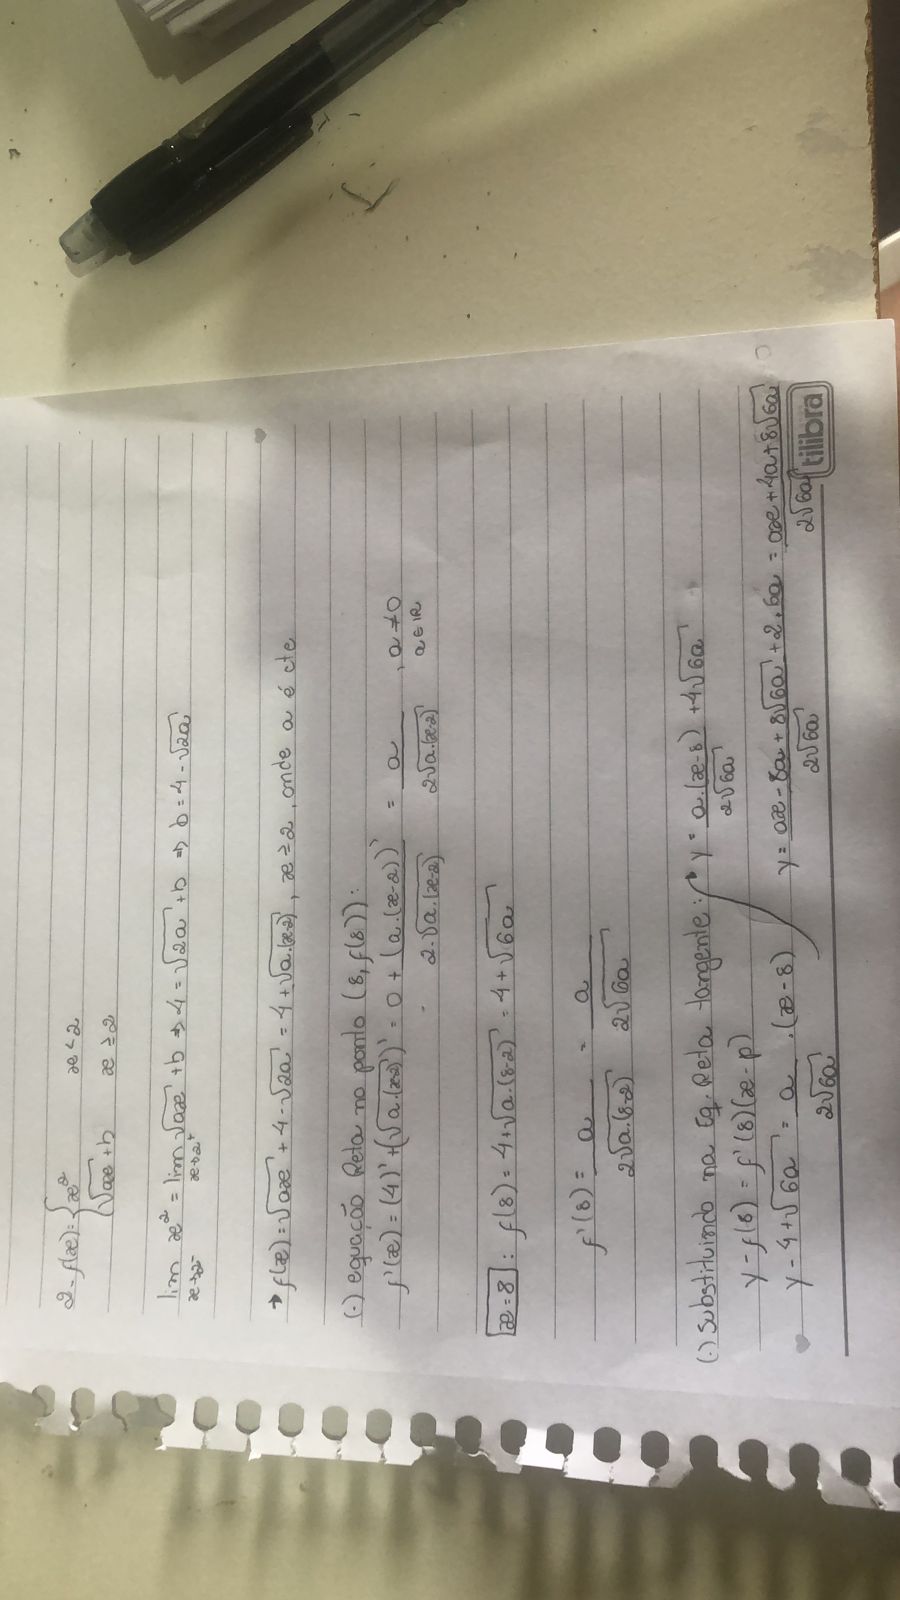 2- f(x) = { x² x < 2
√ax + b x ≥ 2
lim x→2⁻ x² = lim x→2⁺ √ax + b ⇒ 4 = √2a + b ⇒ b = 4 - √2a
→ f(x) = √ax + 4 - √2a = 4 + √a.(x-2), x ≥ 2, onde a é cte
(·) equação Reta no ponto (8, f(8)):
f'(x) = (4)' + (√a.(x-2))' = 0 + (a.(x-2))' / 2.√a.(x-2) = a / 2√a.(x-2) , a ≠ 0 a ∈ IR
x = 8 : f(8) = 4 + √a.(8-2) = 4 + √6a
f'(8) = a / 2√a.(8-2) = a / 2√6a
(·) Substituindo na Eq. Reta tangente:
y - f(8) = f'(8)(x - p)
y - 4 + √6a = a / 2√6a .(x - 8)
y = a.(x-8) / 2√6a + 4√6a
y = ax - 8a + 8√6a + 2.6a / 2√6a = ax + 4a + 8√6a / 2√6a
tilibra